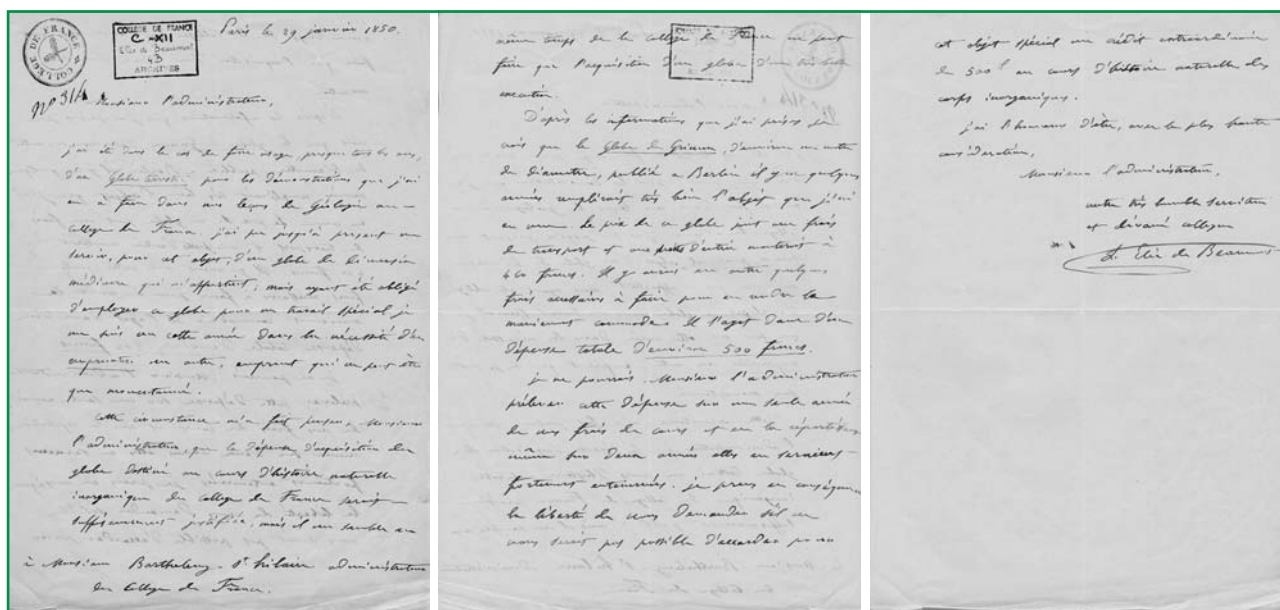 Paris le 29 janvier 1850.
COLLEGE DE FRANCE
COLLEGE DE FRANCE
C-XII
Elie de Beaumont
43
ARCHIVES
n° 314
Monsieur l'administrateur,
j'ai été dans le cas de faire usage, presque tous les ans,
d'un globe terrestre pour les démonstrations que j'ai
eu à faire dans mes leçons de Géologie au
collège de France. j'ai pu jusqu'à présent me
servir, pour cet objet, d'un globe de dimension
médiocre qui m'appartient; mais ayant été obligé
d'employer ce globe pour un travail spécial je
me suis vu cette année dans la nécessité d'en
emprunter un autre, emprunt qui ne peut être
que momentané.
Cette circonstance m'a fait penser, Monsieur
l'administrateur, que la dépense d'acquisition d'un
globe destiné au cours d'histoire naturelle
inorganique du collège de France serait
suffisamment justifiée, mais il me semble en
à Monsieur Barthelemy-St hilaire administrateur
du Collège de France.
même temps que le collège de France ne peut
faire que l'acquisition d'un globe d'une très belle
exécution.
D'après les informations que j'ai prises je
crois que le globe de Grimm, d'environ un mètre
de diamètre, publié à Berlin il y a quelques
années remplirait très bien l'objet que j'ai
en vue. Le prix de ce globe joint aux frais
de transport et aux droits d'entrée monterait à
460 francs. Il y aurait en outre quelques
frais accessoires à faire pour en rendre le
maniement commode. Il s'agit donc d'une
dépense totale d'environ 500 francs.
je ne pourrais, Monsieur l'administrateur
prélever cette dépense sur une seule année
de mes frais de cours et en la répartissant
même sur deux années elles en seraient
fortement entamées. je prends en conséquence
la liberté de vous demander s'il ne
vous serait pas possible d'accorder pour
cet objet spécial un crédit extraordinaire
de 500f au cours d'histoire naturelle des
corps inorganiques.
j'ai l'honneur d'être, avec la plus haute
considération,
Monsieur l'administrateur,
votre très humble serviteur
et dévoué collègue
L. Elie de Beaumont